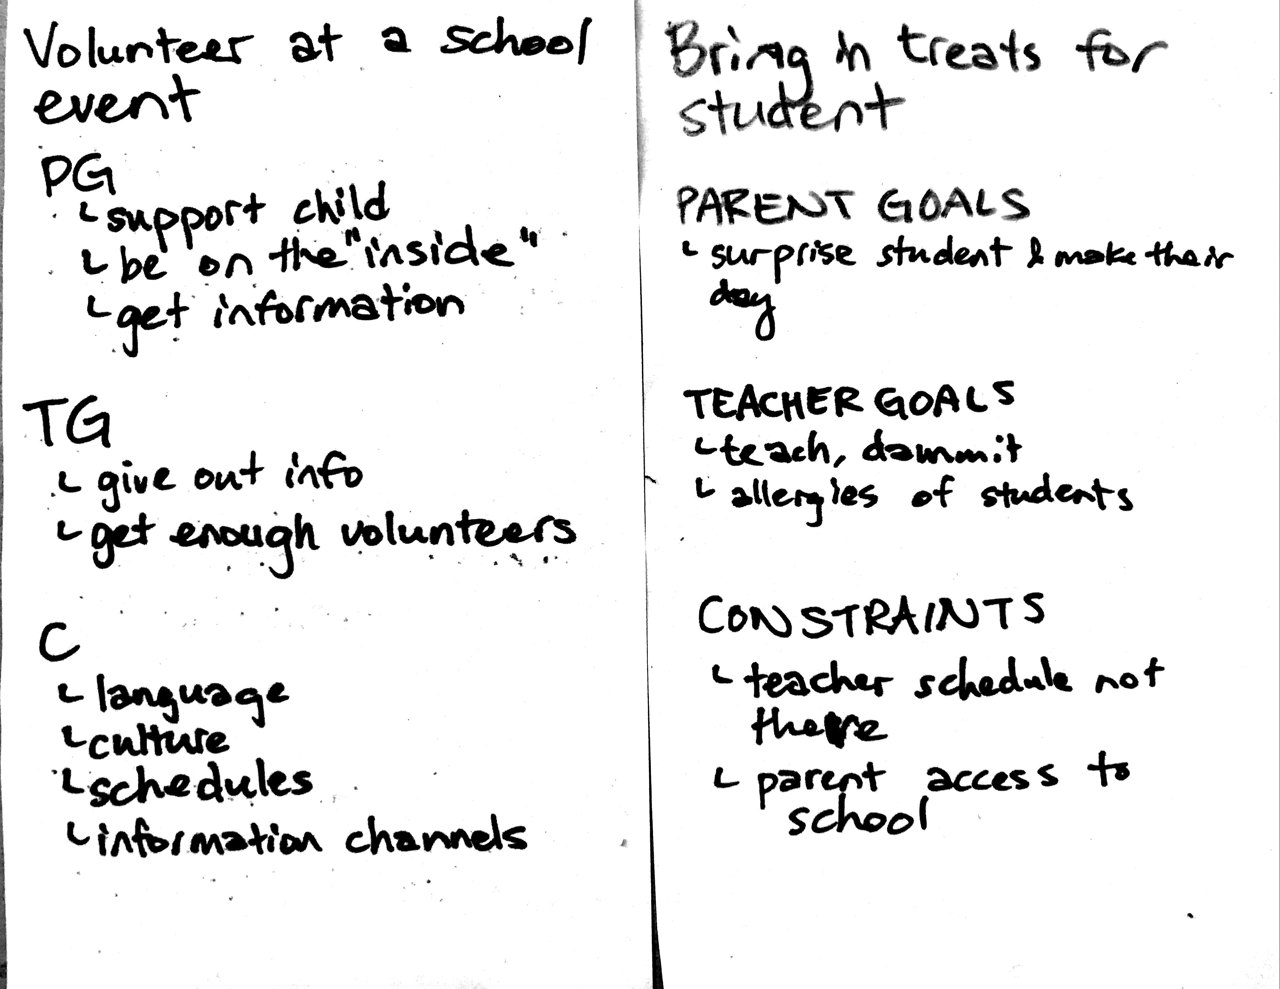 Volunteer at a school
event
PG
support child
be on the "inside"
get information
TG
give out info
get enough volunteers
C
language
culture
schedules
information channels
Bring in treats for
student
PARENT GOALS
surprise student & make their
day
TEACHER GOALS
teach, dammit
allergies of students
CONSTRAINTS
teacher schedule not
there
parent access to
school